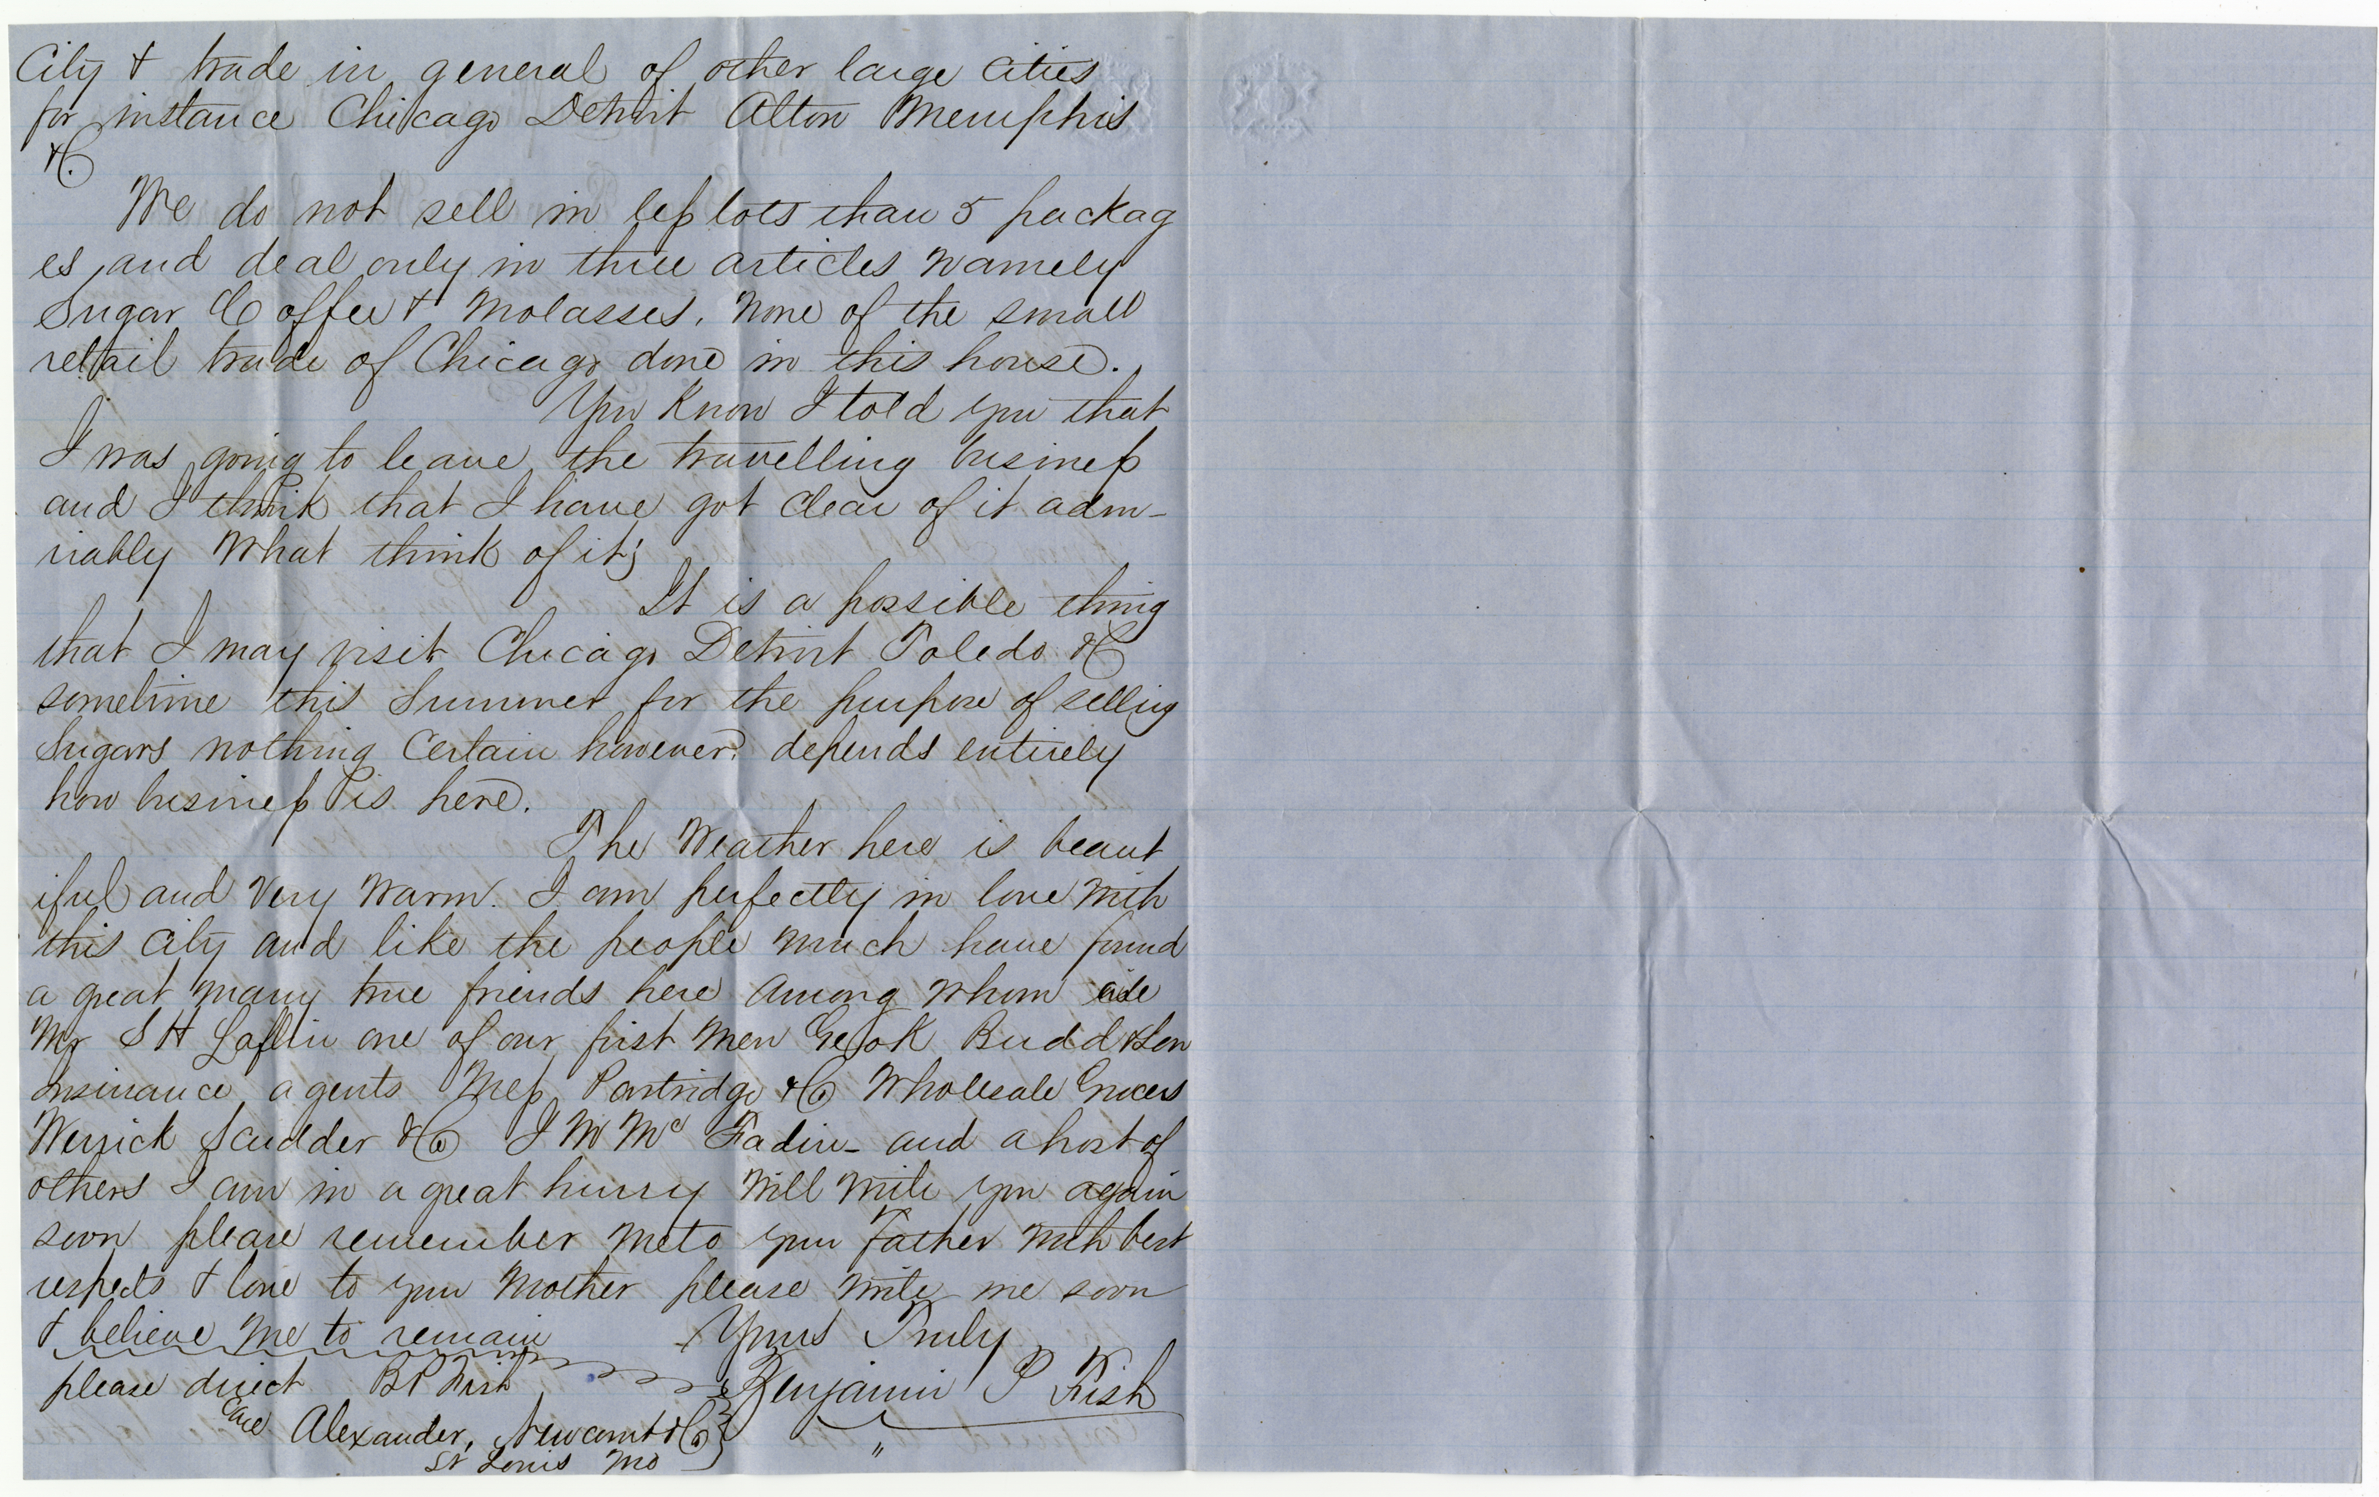 City & trade in general of other large cities
for instance Chicago Detroit Alton Memphis
&C.
We do not sell in less lots than 5 packag
es, and deal only in three articles namely
Sugar Coffee & Molasses. None of the small
retail trade of Chicago done in this house.
You Know I told you that
I was going to leave the travelling business
and I think that I have got clear of it adm-
riably What think of it;
It is a possible thing
that I may visit Chicago Detroit Toledo &C
sometime this Summer for the purpose of selling
Sugars nothing Certain however. depends entirely
how business is here.
The Weather here is beaut
iful and Very Warm. I am perfectly in love with
this City and like the people much have found
a great many true friends here among whom are
Mr S H Laflin one of our first men Geo K Budd & Son
Insurance agents Mess Partridge & Co Wholesale Grocers
Scudder & Co J W Mc Fadin- and a host of
others I am in a great hurry Will write you again
soon please remember me to your Father with best
respects & love to your Mother please write me soon
& believe me to remain Yours Truly
please direct B P Fish Benjamin P Fish
Care Alexander, Newcomb & Co
St Louis Mo